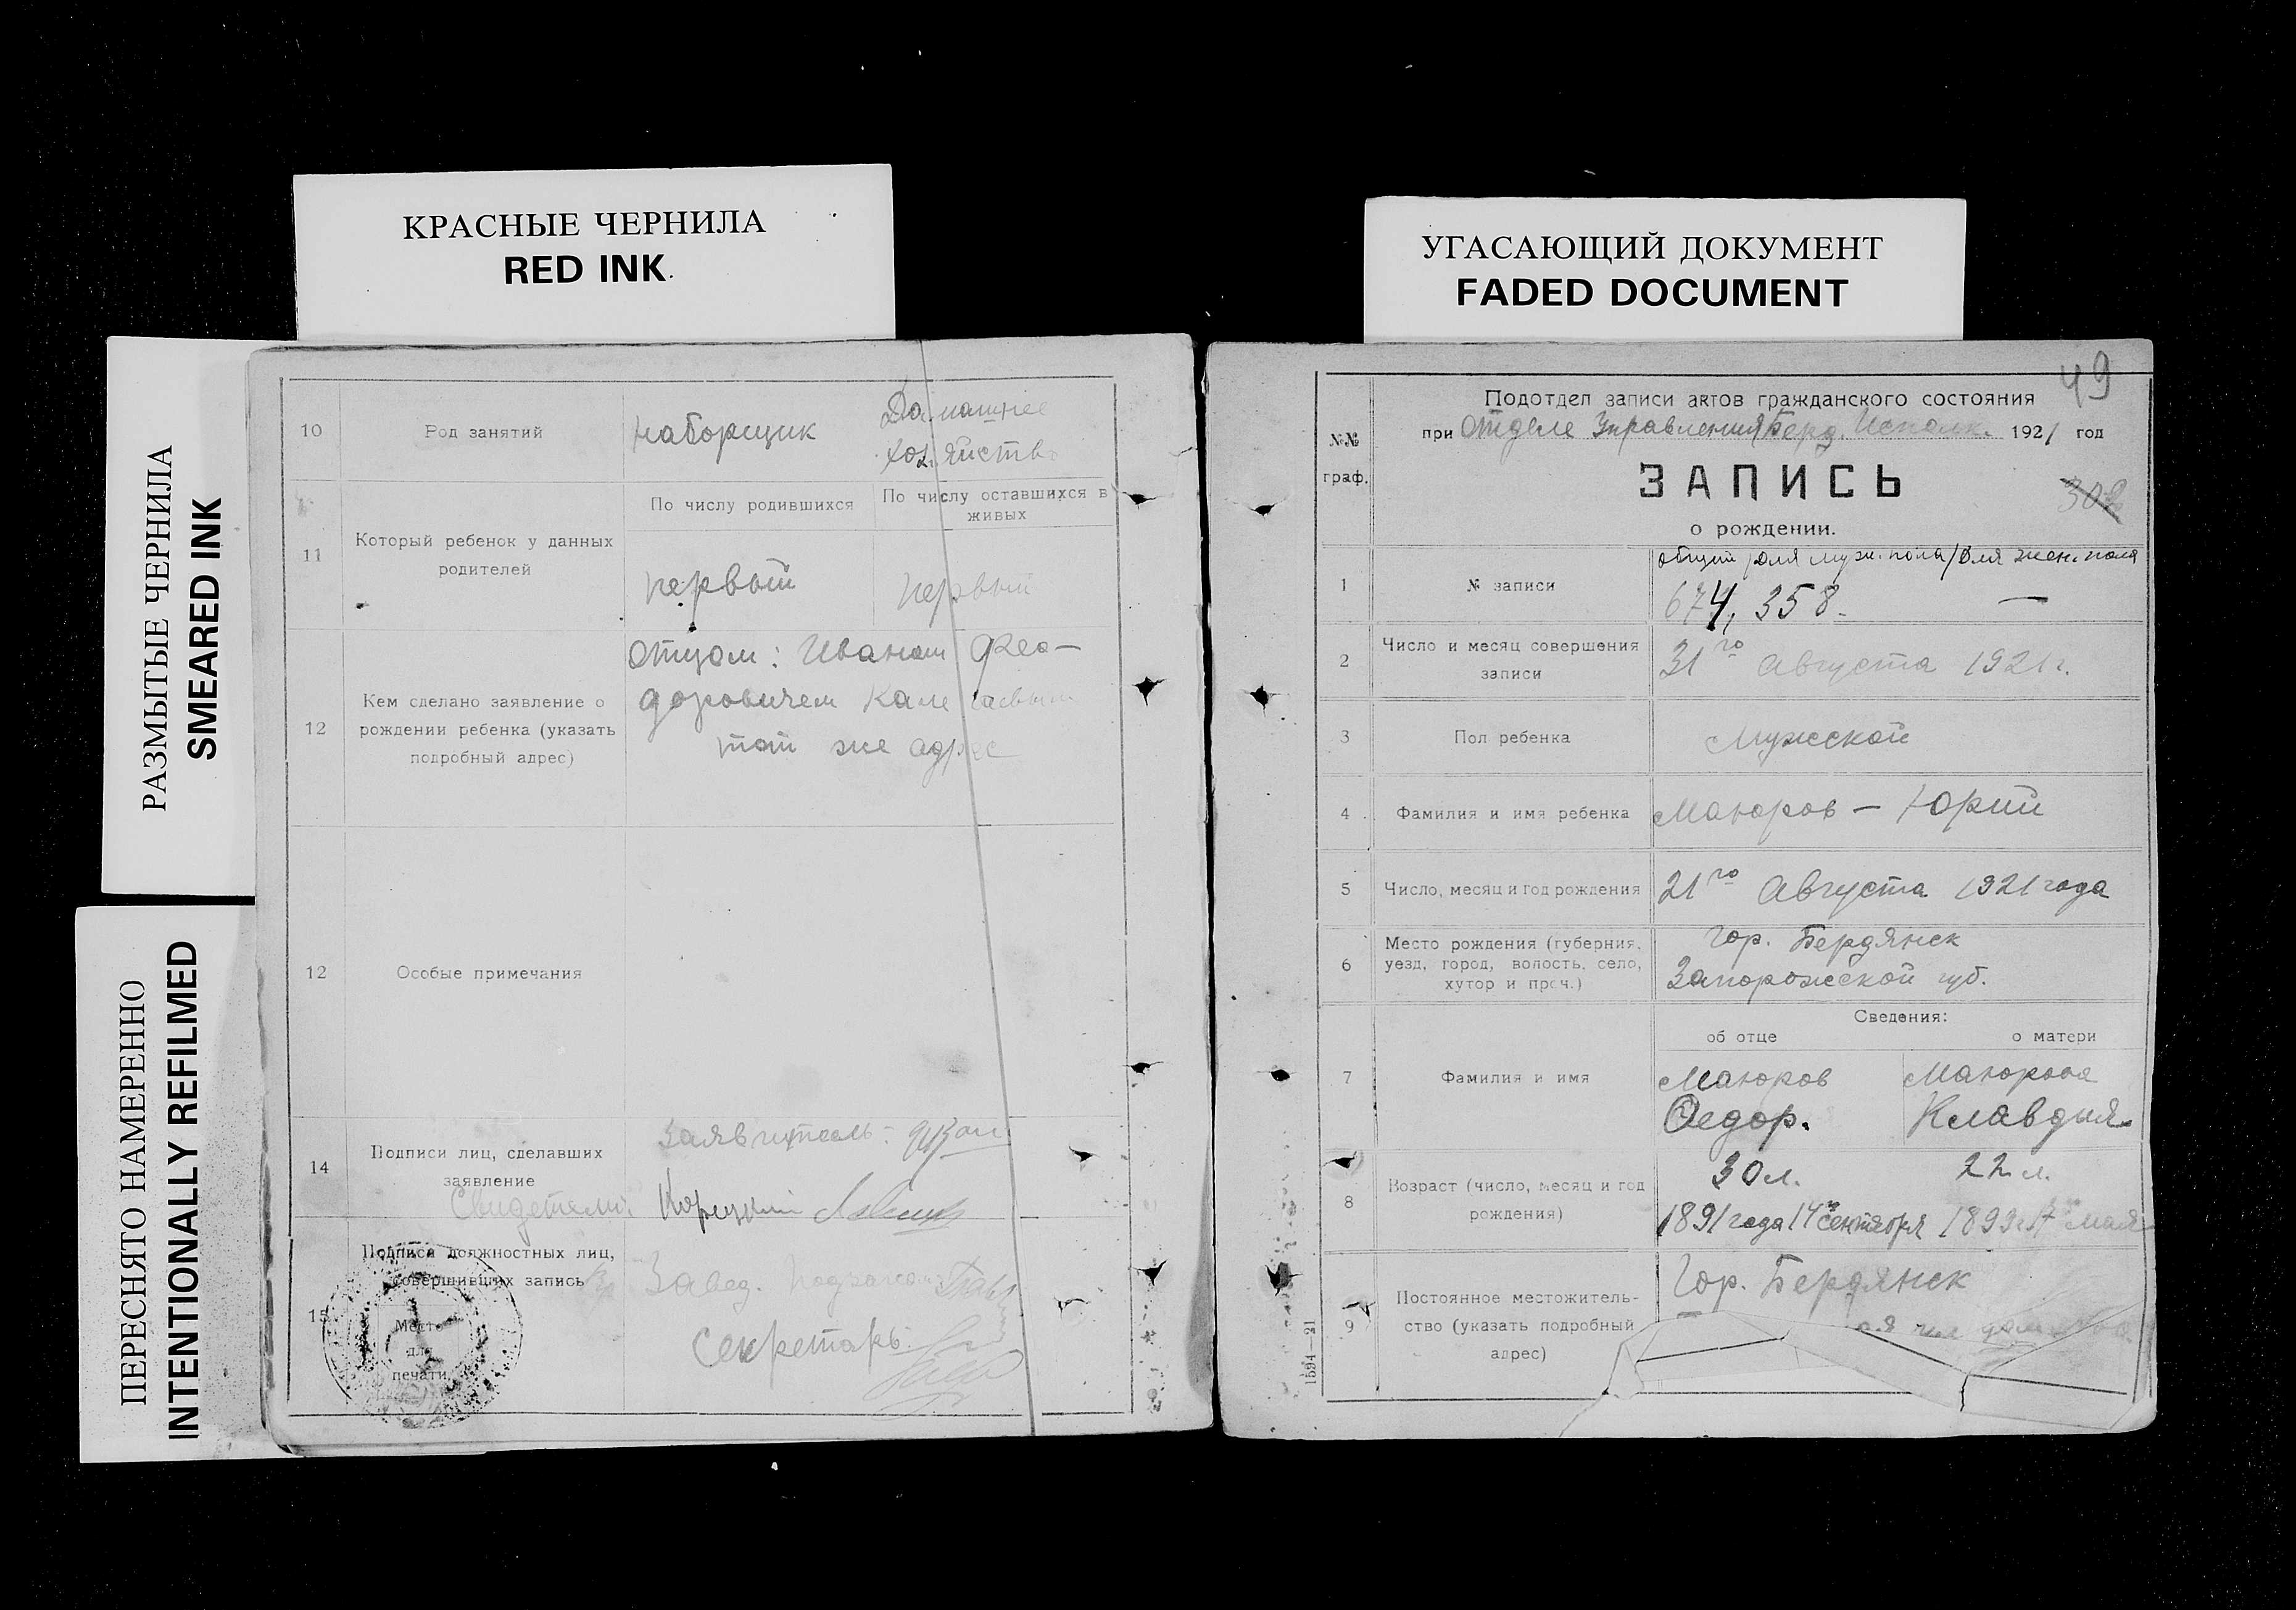 КРАСНЫЕ ЧЕРНИЛА
RED INK
УГАСАЮЩИЙ ДОКУМЕНТ
FADED DOCUMENT
РАЗМЫТЫЕ ЧЕРНИЛА
SMEARED INK
ПЕРЕСНЯТО НАМЕРЕННО
INTENTIONALLY REFILMED
10
Род занятий
наборщик
Домашнее
хозяйство
11
Который ребенок у данных
родителей
По числу родившихся
По числу оставшихся в
живых
первый
первый
12
Кем сделано заявление о
рождении ребенка (указать
подробный адрес)
отцом: Иваном Фео-
доровичем
тот же адрес
12
Особые примечания
14
Подписи лиц, сделавших
заявление
Заявитель:
Свидетели:
15
Подписи должностных лиц,
совершивших запись
Место
для
печати
Завед.
Секретарь
49
№№
граф.
Подотдел записи актов гражданского состояния
при Отделе Управления Берд. Исполк. 1921 год
ЗАПИСЬ
302
о рождении.
1
№ записи
общий для муж. пола/для жен. пола
674, 358. —
2
Число и месяц совершения
записи
31го Августа 1921 г.
3
Пол ребенка
Мужской
4
Фамилия и имя ребенка
Маюров — Юрий
5
Число, месяц и год рождения
21го Августа 1921 года
6
Место рождения (губерния,
уезд, город, волость, село,
хутор и проч.)
Гор. Бердянск
Запорожской губ.
Сведения:
об отце
о матери
7
Фамилия и имя
Маюров
Федор.
Маюрова
Клавдия
8
Возраст (число, месяц и год
рождения)
30 л.
22 л.
1891 года 14го сентября
1899 г. 17го мая
9
Постоянное местожитель-
ство (указать подробный
адрес)
Гор. Бердянск
1594—21